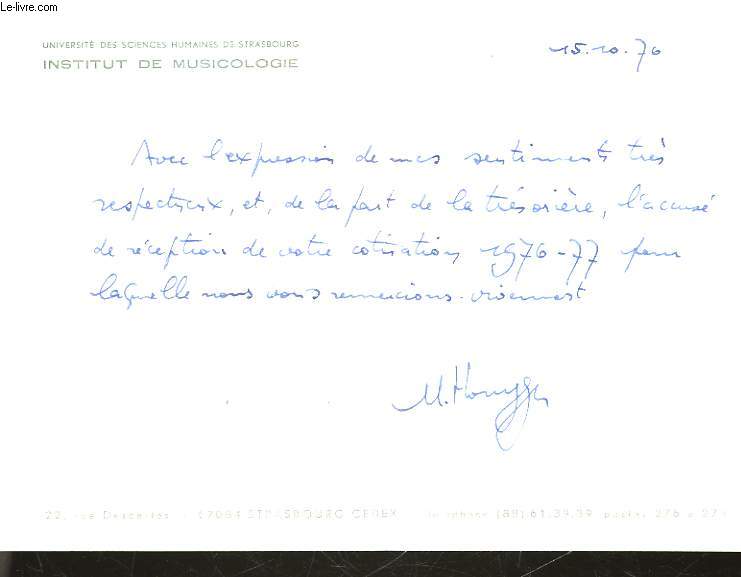 Le-livre.com
UNIVERSITÉ DES SCIENCES HUMAINES DE STRASBOURG
INSTITUT DE MUSICOLOGIE
15.10.76
Avec l'expression de mes sentiments très
respectueux, et, de la part de la trésorière, l'accusé
de réception de votre cotisation 1976-77 pour
laquelle nous vous remercions vivement
M. Honegger
22, rue Descartes - 67084 STRASBOURG CEDEX - Téléphone (88) 61.39.39 postes 276 à 27